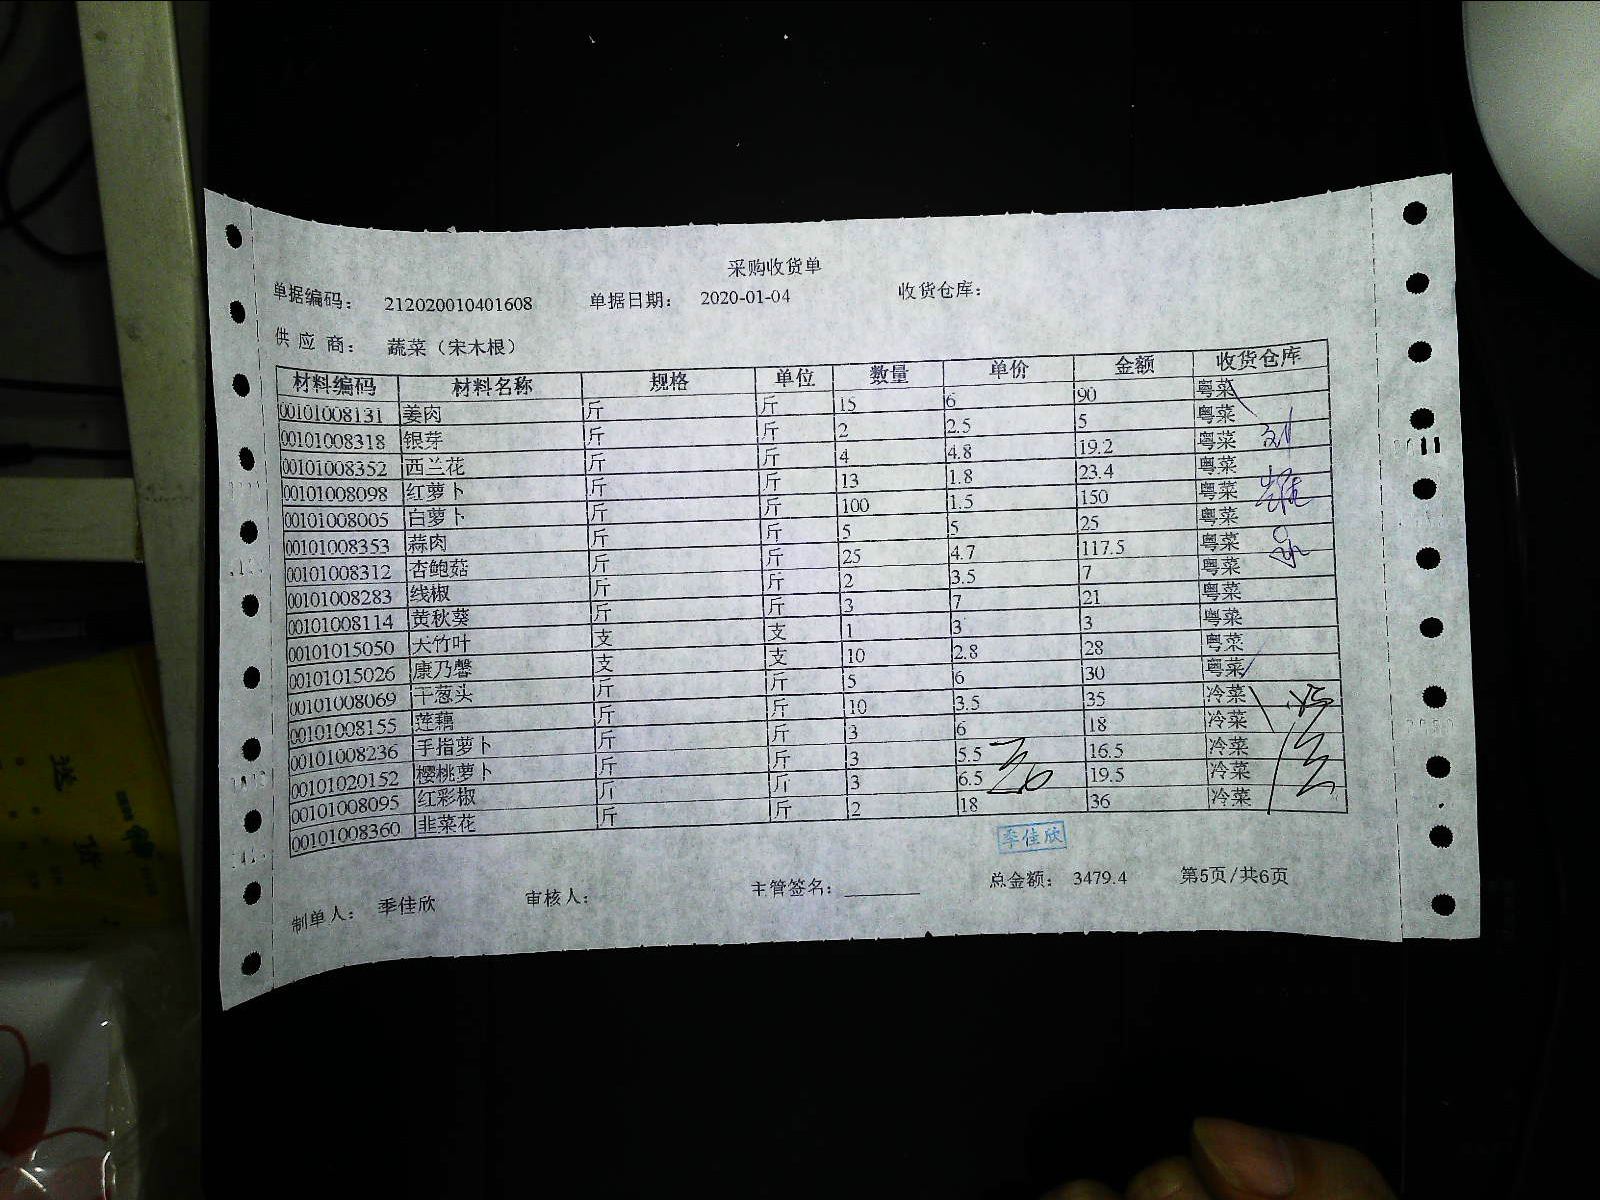 采购收货单
单据编码： 212020010401608 单据日期： 2020-01-04 收货仓库：
供应商： 蔬菜（宋木根）
材料编码 材料名称 规格 单位 数量 单价 金额 收货仓库
00101008131 姜肉 斤 斤 15 6 90 粤菜
00101008318 银芽 斤 斤 2 2.5 5 粤菜
00101008352 西兰花 斤 斤 4 4.8 19.2 粤菜
00101008098 红萝卜 斤 斤 13 1.8 23.4 粤菜
00101008005 白萝卜 斤 斤 100 1.5 150 粤菜
00101008353 蒜肉 斤 斤 5 5 25 粤菜
00101008312 杏鲍菇 斤 斤 25 4.7 117.5 粤菜
00101008283 线椒 斤 斤 2 3.5 7 粤菜
00101008114 黄秋葵 斤 斤 3 7 21 粤菜
00101015050 天竹叶 支 支 1 3 3 粤菜
00101015026 康乃馨 支 支 10 2.8 28 粤菜
00101008069 干葱头 斤 斤 5 6 30 粤菜
00101008155 莲藕 斤 斤 10 3.5 35 冷菜
00101008236 手指萝卜 斤 斤 3 6 18 冷菜
00101020152 樱桃萝卜 斤 斤 3 5.5 16.5 冷菜
00101008095 红彩椒 斤 斤 3 6.5 19.5 冷菜
00101008360 韭菜花 斤 斤 2 18 36 冷菜
季佳欣
制单人： 季佳欣 审核人： 主管签名： 总金额： 3479.4 第5页/共6页